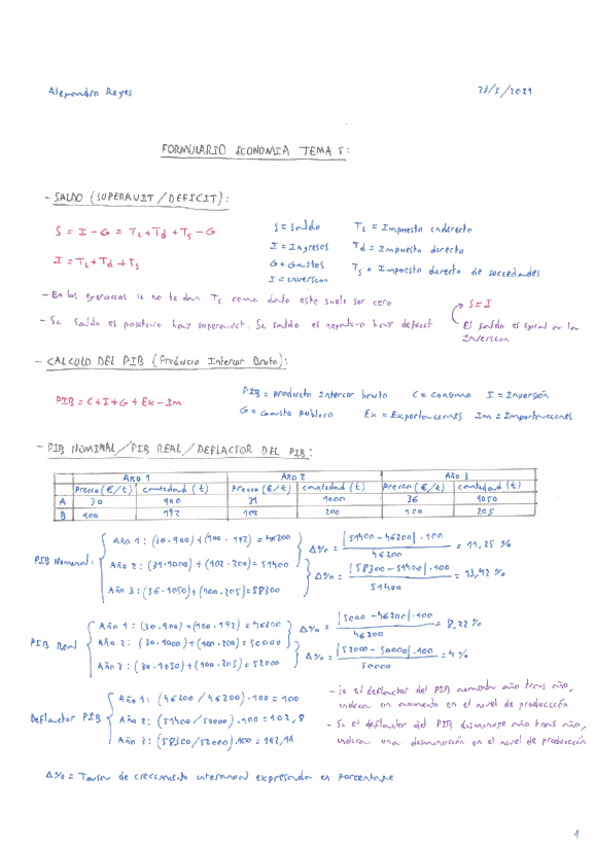 Alejandro Reyes
FORMULARIO ECONOMIA TEMA 5:
- SALDO (SUPERAVIT/DEFICIT):
S = I - G = Ti + Td + Ts - G
I = Ti + Td + Ts
S = Saldo
I = Ingresos
G = Gastos
I = inversion
Ti = Impuesto indirecto
Td = Impuesto directo
Ts = Impuesto directo de sociedades
- En los ejercicios si no te dan Ts como dato este suele ser cero
- Si saldo es positivo hay superavit. Si saldo es negativo hay deficit
S = I
El saldo es igual a la
inversion
- CALCULO DEL PIB (Producto Interior Bruto):
PIB = C + I + G + Ex - Im
PIB = producto interior bruto C = Consumo I = Inversión
G = Gasto publico Ex = Exportaciones Im = Importaciones
- PIB NOMINAL/PIB REAL/DEFLACTOR DEL PIB:
Año 1 Año 2 Año 3
Precio (€/t) cantidad (t) Precio (€/t) cantidad (t) Precio (€/t) cantidad (t)
A 30 900 31 1000 36 1050
B 100 192 102 200 100 205
PIB Nominal =
Año 1: (30·900) + (100·192) = 46200
Año 2: (31·1000) + (102·200) = 51400
Año 3: (36·1050) + (100·205) = 58300
Δ% = |51400 - 46200|·100 / 46200 = 11,25 %
Δ% = |58300 - 51400|·100 / 51400 = 13,42 %
PIB Real
Año 1: (30·900) + (100·192) = 46200
Año 2: (30·1000) + (100·200) = 50000
Año 3: (30·1050) + (100·205) = 52000
Δ% = |5000 - 46200|·100 / 46200 = 8,22 %
Δ% = |52000 - 50000|·100 / 50000 = 4 %
Deflactor PIB
Año 1: (46200/46200)·100 = 100
Año 2: (51400/50000)·100 = 102,8
Año 3: (58300/52000)·100 = 112,11
- Si el deflactor del PIB aumenta año tras año,
indica un aumento en el nivel de producción
- Si el deflactor del PIB disminuye año tras año,
indica una disminución en el nivel de producción
Δ% = Tasa de crecimiento interanual expresada en porcentaje
1